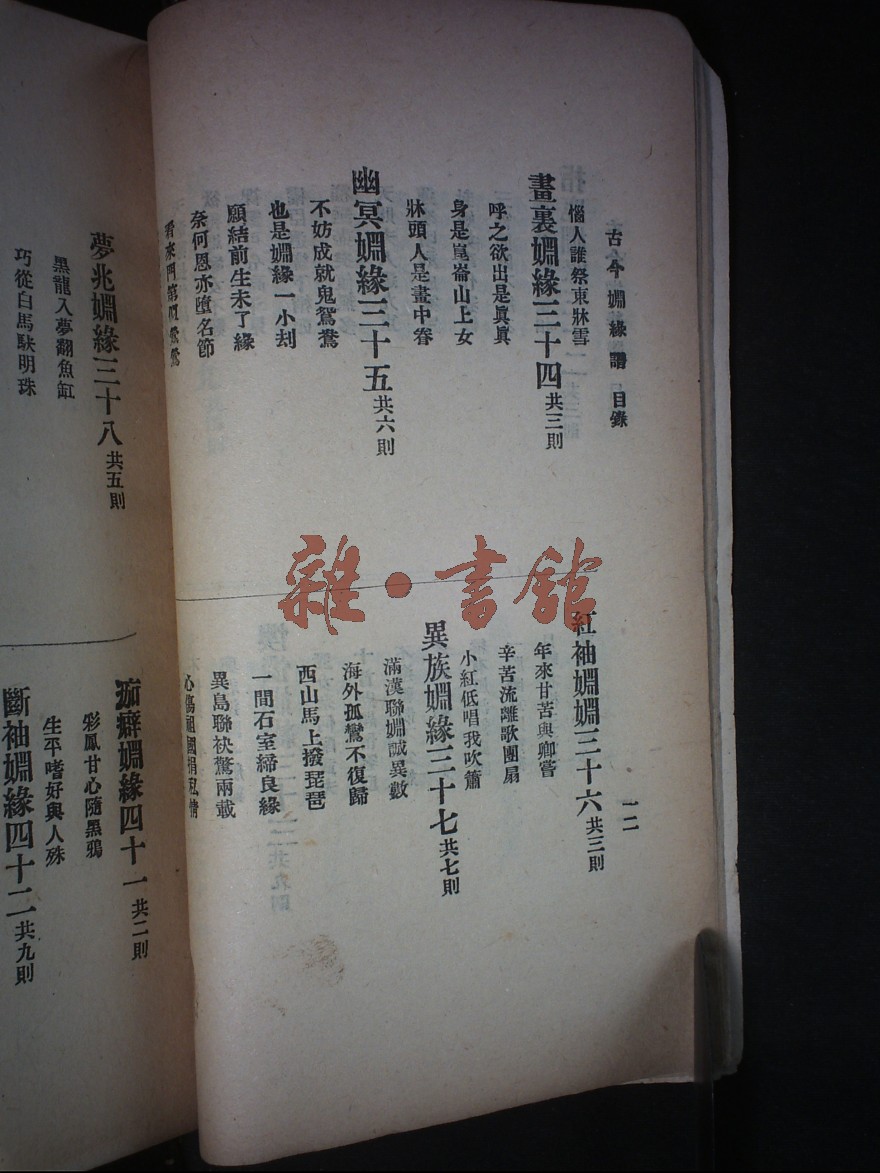 古今婣緣譜 目錄
一二
惱人誰祭東牀雪
畫裏婣緣三十四 共三則
呼之欲出是眞眞
身是崑崙山上女
牀頭人是畫中眷
幽冥婣緣三十五 共六則
不妨成就鬼鴛鴦
也是婣緣一小刦
願結前生未了緣
奈何恩亦墮名節
紅袖婣婣三十六 共三則
年來甘苦與卿嘗
辛苦流離歌團扇
小紅低唱我吹簫
異族婣緣三十七 共七則
滿漢聯婣誠異數
海外孤鸞不復歸
西山馬上撥琵琶
一間石室締良緣
異島聯袂驚兩載
心傷祖國捐私情
夢兆婣緣三十八 共五則
黑龍入夢翻魚缸
巧從白馬馱明珠
痂癖婣緣四十一 共二則
彩鳳甘心隨黑鴉
生平嗜好與人殊
斷袖婣緣四十二 共九則
雜·書館